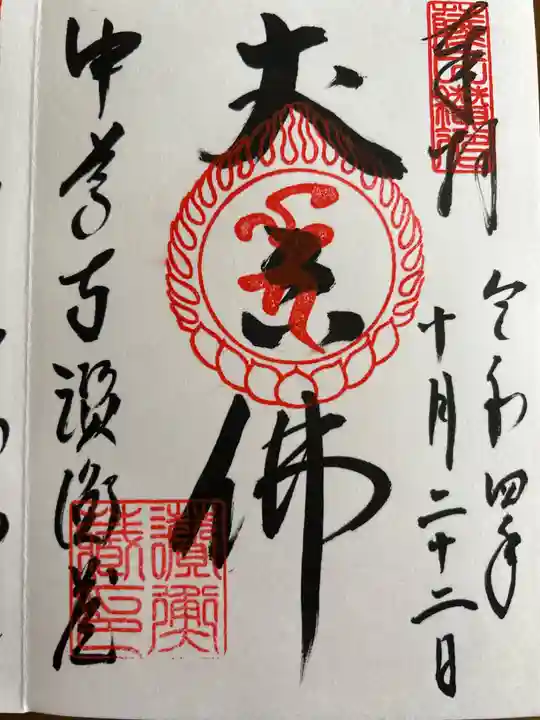 奉拝
令和四年
十月二十二日
丈六佛
中尊寺讃衡蔵
讚衡
藏印